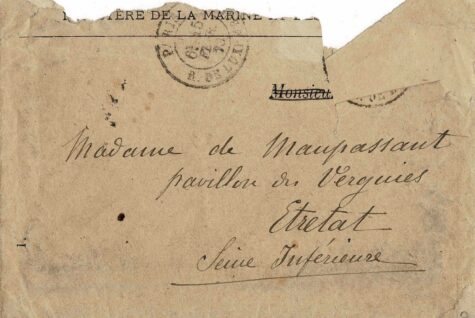 DE LA MARINE
Monsieur
Madame de Maupassant
pavillon des Verguies
Etretat
Seine Inférieure
1.